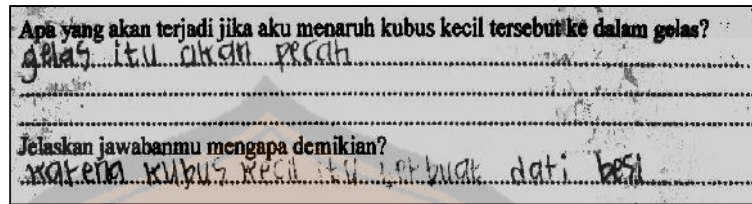 Apa yang akan terjadi jika aku menaruh kubus kecil tersebut ke dalam gelas?
gelas itu akan pecah
Jelaskan jawabanmu mengapa demikian?
karena kubus kecil itu terbuat dari besi